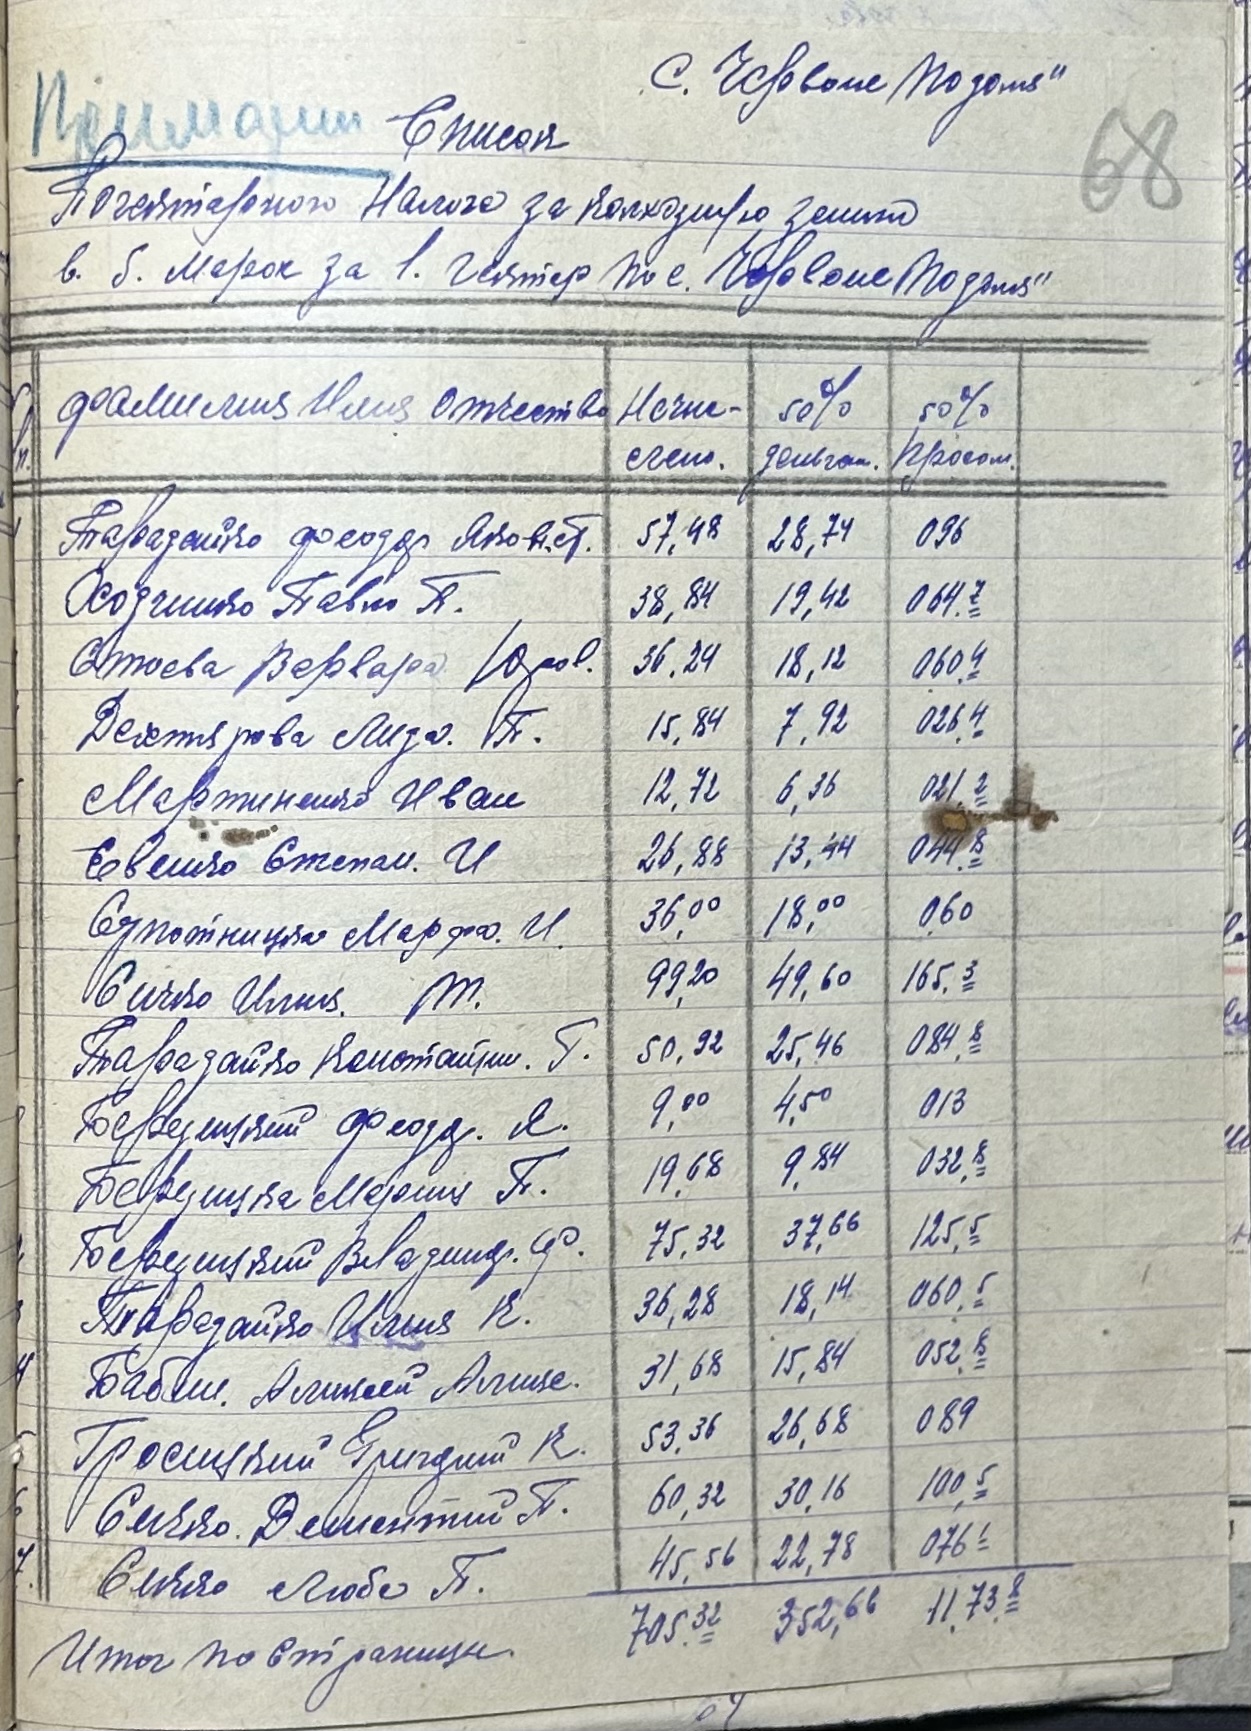 С. Червоне Подолья"
68
Список
Погектарного Налога за колхозную землю
в. б. Марок за 1. гектар по с. Червоне Подолья"
Фамилия Имя Отчество Начис- 50% 50%
слено. деньгам. просом.
Тарадайко Феодор Яковл. 57,48 28,74 096
Сходченко Павло П. 38,84 19,42 064.7
Стоева Варвара 36.24 18,12 060.4
Дехтярова Лида. П. 15,84 7,92 026,4
Мартиненко Иван 12,72 6,36 021.2
Евенко Степан. И 26,88 13,44 044.8
Марфа. И. 36,00 18,00 060
Сичко Илия. М. 99,20 49,60 165.3
Тарадайко Констанция. Г. 50,92 25,46 084,8
Бервицкий Феодр. Я. 9,00 4,50 013
Бервицка Мария П. 19,68 9,84 032.8
Бервицкий Владимр. Ф. 75,32 37,66 125,5
Тарадайко Илия К. 36,28 18,14 060.5
4 Бабич. Алексей Алексе. 31,68 15,84 052.8
5 Гросицкий Григорий К. 53,36 26,68 089
6 Сичко. Дементий П. 60,32 30,16 100,5
7. Сичко Люба П. 45,56 22,78 076
Итог по Страницы. 705.32 352,66 11.73.8